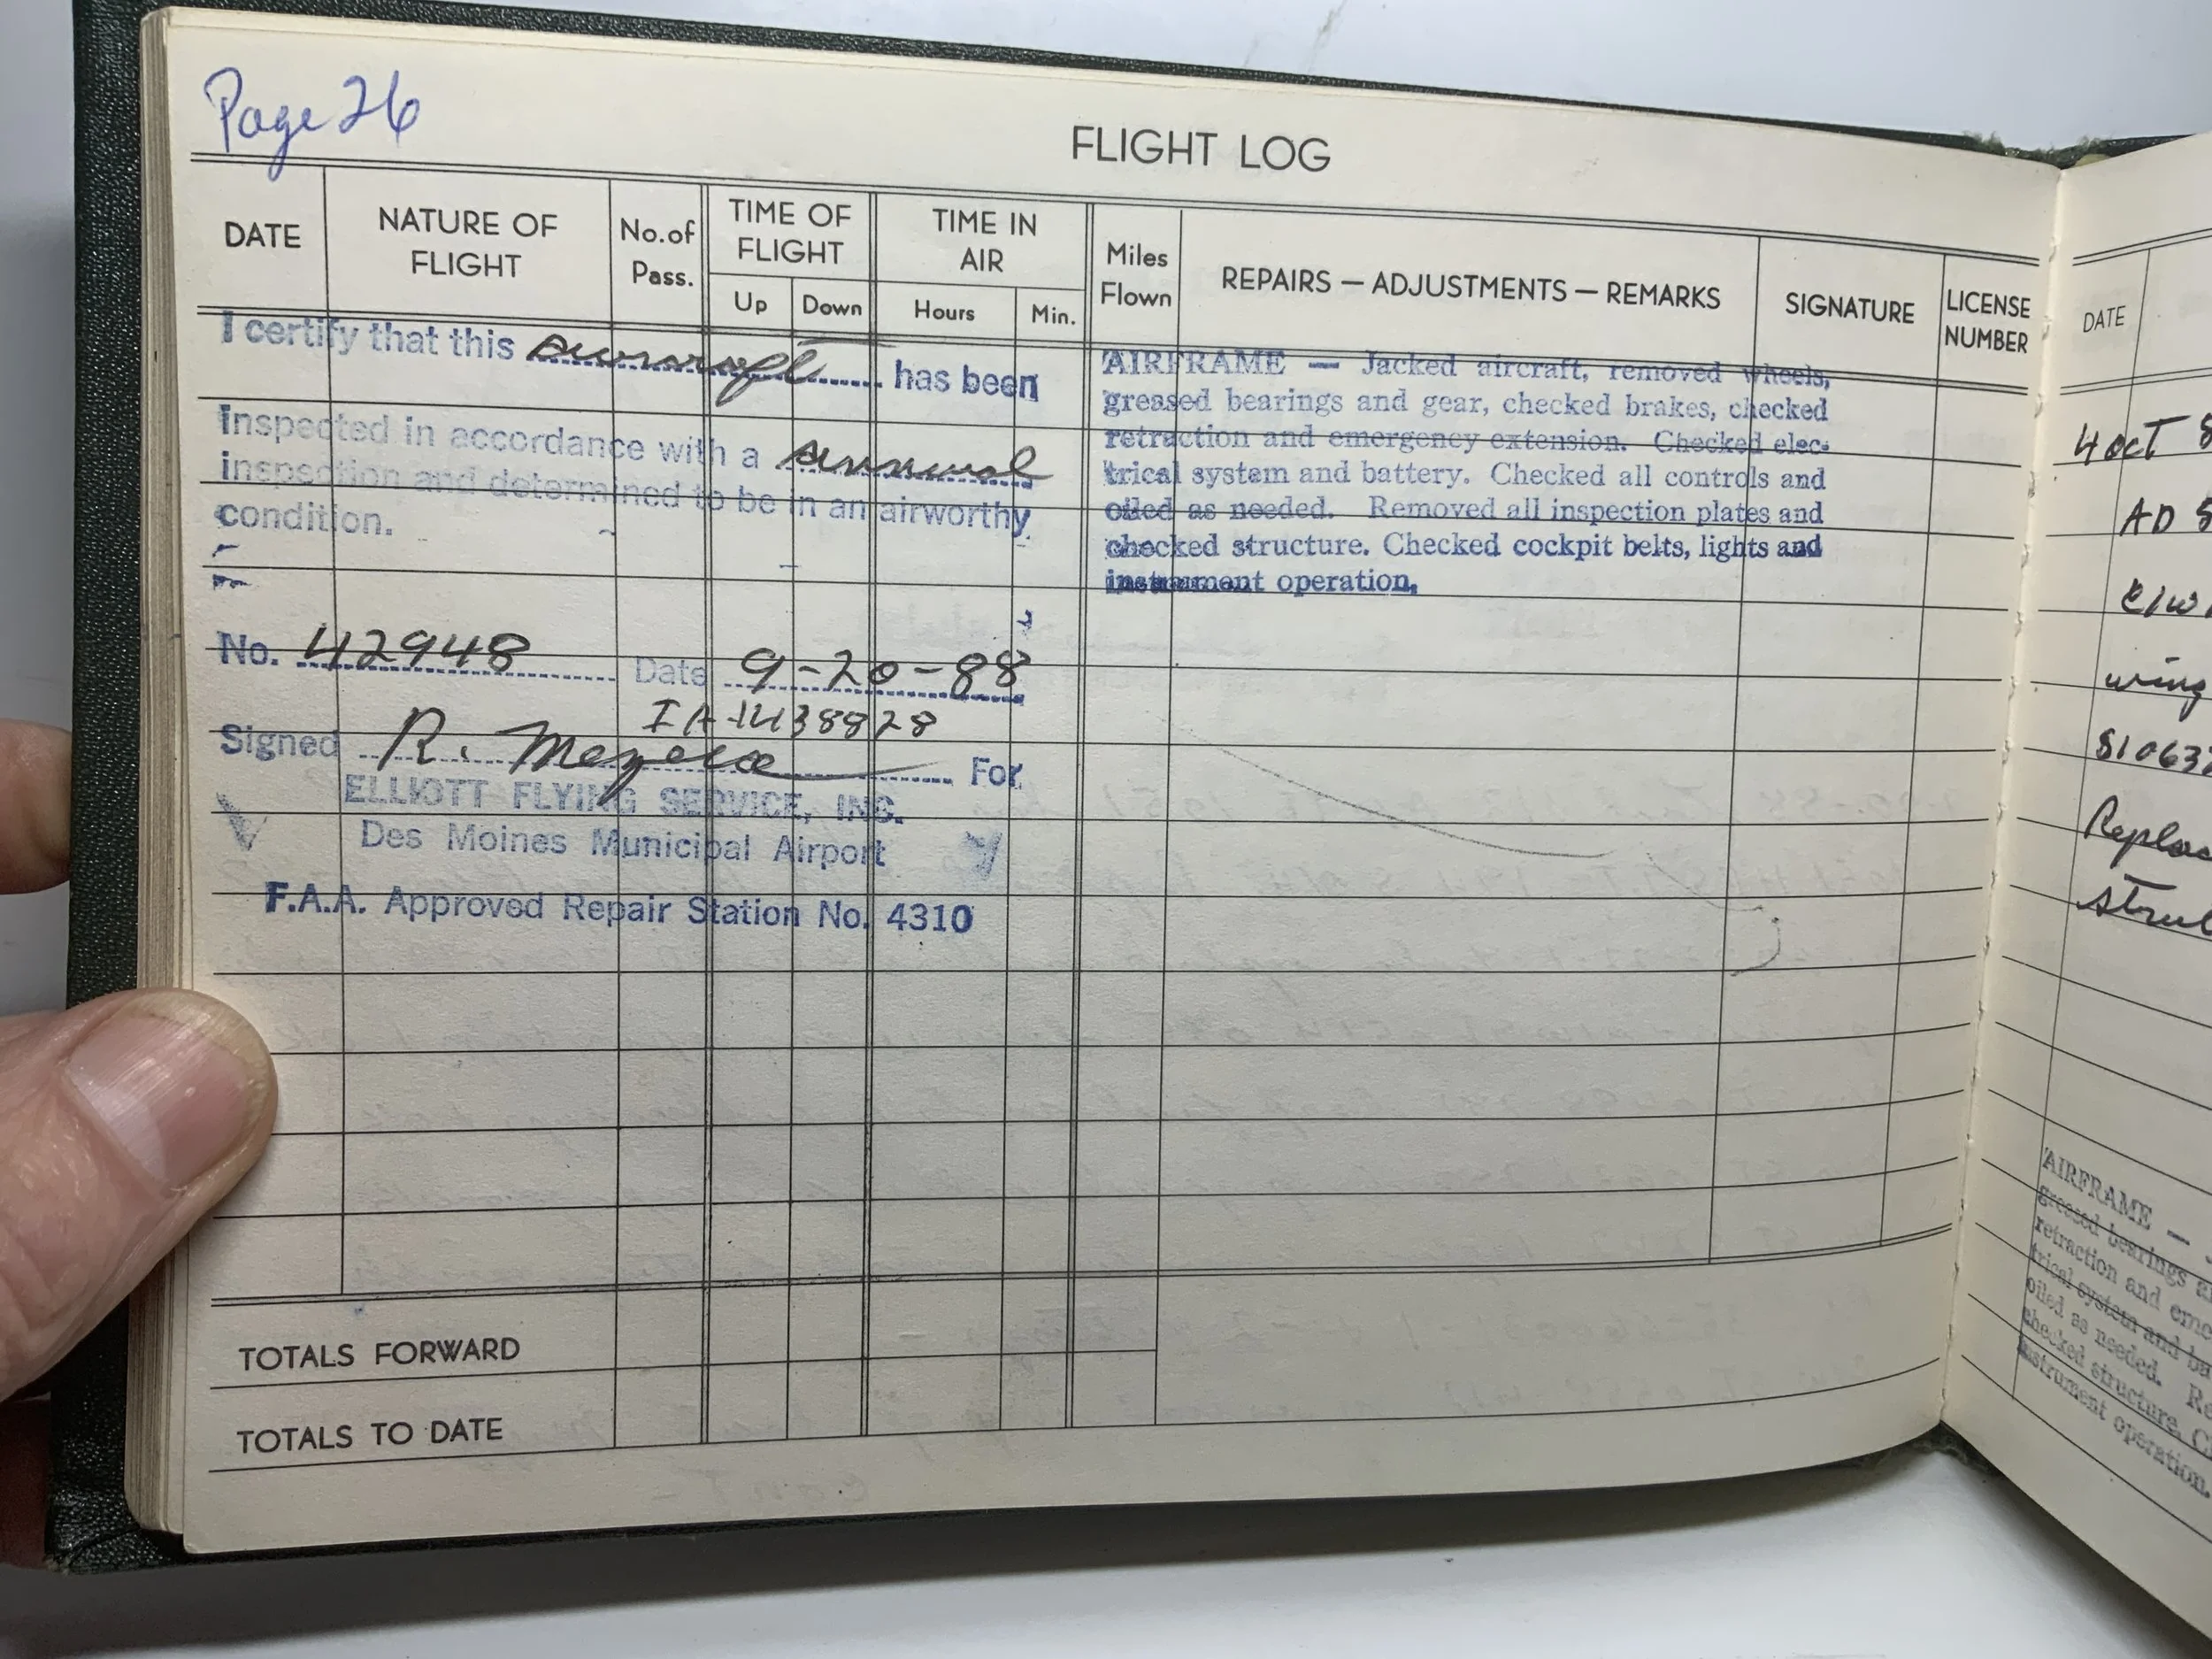 Page 26
FLIGHT LOG
DATE
NATURE OF FLIGHT
No. of Pass.
TIME OF FLIGHT
Up
Down
TIME IN AIR
Hours
Min.
Miles Flown
REPAIRS — ADJUSTMENTS — REMARKS
SIGNATURE
LICENSE NUMBER
I certify that this aircraft has been
Inspected in accordance with a annual
inspection and determined to be in an airworthy
condition.
No. 42948 Date 9-20-88
IA 1438828
Signed R. For
ELLIOTT FLYING SERVICE, INC.
Des Moines Municipal Airport
F.A.A. Approved Repair Station No. 4310
AIRFRAME — Jacked aircraft, removed wheels,
greased bearings and gear, checked brakes, checked
retraction and emergency extension. Checked elec-
trical system and battery. Checked all controls and
oiled as needed. Removed all inspection plates and
checked structure. Checked cockpit belts, lights and
instrument operation.
TOTALS FORWARD
TOTALS TO DATE
DATE
4 Oct 8
AD 8
wing
AIRFRAME —
greased bearings
retraction and
trical system and
oiled as needed.
checked structure.
instrument operation.